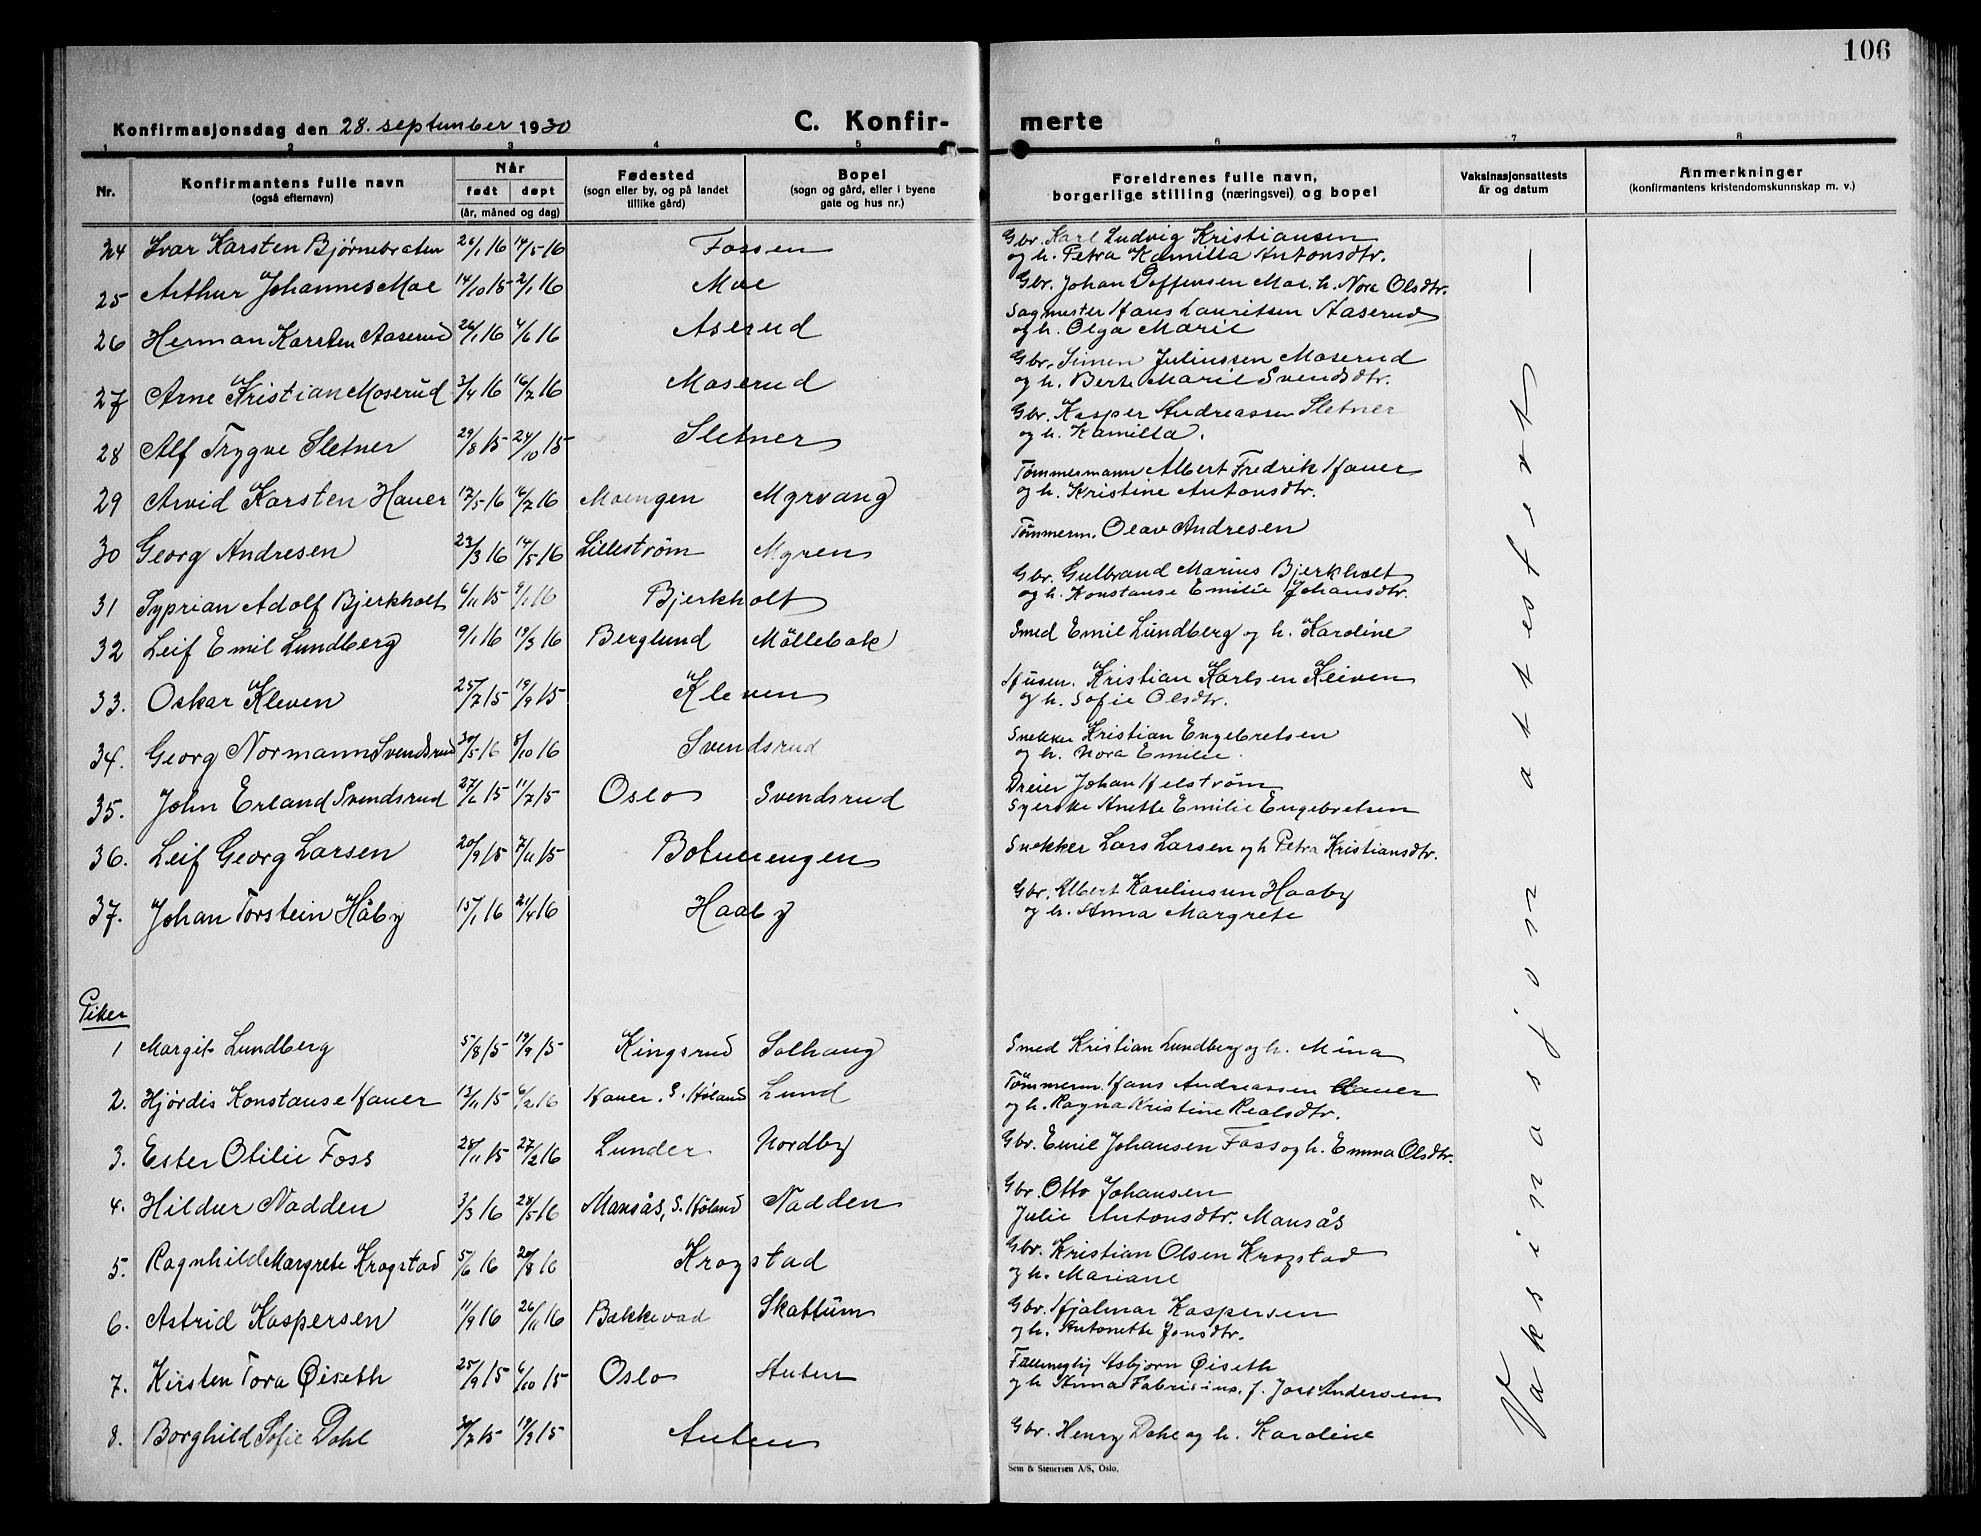 106
Konfirmasjonsdag den 28. september 1930
C. Konfir-
merte
1 2 3 4 5 6 7 8
Nr.
Konfirmantens fulle navn
(også efternavn)
Når
født døpt
(år, måned og dag)
Fødested
(sogn eller by, og på landet
tillike gård)
Bopel
(sogn og gård, eller i byene
gate og hus nr.)
Foreldrenes fulle navn,
borgerlige stilling (næringsvei) og bopel
Vaksinasjonsattests
år og datum
Anmerkninger
(konfirmantens kristendomskunnskap m. v.)
24 Ivar Karsten Bjørnebraten 26/1 16 14/5 16 Fossen Gbr. Karl Ludvig Kristiansen
og h. Petra Kamilla Antonsdtr.
25 Arthur Johannes Moe 14/10 15 2/1 16 Moe Gbr. Johan Moe. h. Nora Olsdtr.
26 Herman Karsten Aaserud 26/1 16 4/6 16 Aserud Sagmester Hans Lauritsen Aaserud
og h. Olga Marie
27 Arne Kristian Moserud 3/4 16 16/7 16 Moserud Gbr. Simen Juliussen Moserud
og h. Berte Marie Svendsdtr.
28 Alf Trygve Sletner 29/8 15 24/10 15 Sletner Gbr. Kasper Andreassen Sletner
og h. Kamilla.
29 Arvid Karsten Hauer 17/5 16 16/7 16 Moengen Myrvang Tømmermann Albert Fredrik Hauer
og h. Kristine Antonsdtr.
30 Georg Andresen 23/3 16 14/5 16 Lillestrøm Myren Tømmerm. Olav Andresen
31 Syprian Adolf Bjerkholt 6/11 15 9/1 16 Bjerkholt Gbr. Gulbrand Marius Bjerkholt
og h. Konstanse Emilie Johansdtr.
32 Leif Emil Lundberg 9/1 16 19/3 16 Berglund Møllebak Smed Emil Lundberg og h. Karoline
33. Oskar Kleven 25/7 15 19/9 15 Kleven Husm. Kristian Karlsen Kleven
og h. Sofie Olsdtr.
34. Georg Normann Svendsrud 30/5 16 8/10 16 Svendsrud Snekker Kristian Engebretsen
og h. Nora Emilie.
35. John Erland Svendsrud 27/6 15 11/7 15 Oslo Svendsrud Dreier Johan Helstrøm
Syerske Anette Emilie Engebretsen
36. Leif Georg Larsen 20/9 15 7/11 15 Botnerengen Snekker Lars Larsen og h Petra Kristiansdtr.
37. Johan Torstein Håby 15/1 16 21/4 16 Haaby Gbr. Albert Karelinsen Haaby
og h. Anna Margrete
Piker
1 Margit Lundberg 5/8 15 19/9 15 Kingsrud Solhaug Smed Kristian Lundberg og h. Mina
2. Hjørdis Konstanse Hauer 13/11 15 6/2 16 Hauer. S. Høland Lund Tømmerm. Hans Andreassen Hauer
og h. Ragna Kristine Realsdtr.
3. Ester Otilie Foss 28/11 15 27/2 16 Lunder Nordby Gbr. Emil Johansen Foss og h. Emma Olsdtr.
4. Hildur Nadden 3/3 16 28/5 16 Mansås, S. Høland Nadden Gbr. Otto Johansen
Julie Antonsdtr. Mansås
5. Ragnhild Margrete Krogstad 5/6 16 20/8 16 Krogstad Gbr. Kristian Olsen Krogstad
og h. Mariane
6. Astrid Kaspersen 11/9 16 26/11 16 Bakkevad Skattum Gbr. Hjalmar Kaspersen
og h. Antonette Jensdtr.
7. Kirsten Tora Øiseth 25/9 15 6/10 15 Oslo Auten Asbjørn Øiseth
og h Anna Fabricius, f. Andersen
8. Borghild Sofie Dahl 30/7 15 19/9 15 Auten Gbr. Henry Dahl og h. Karoline
Vaksinasjon attestert
Sem & Stenersen A/S, Oslo.